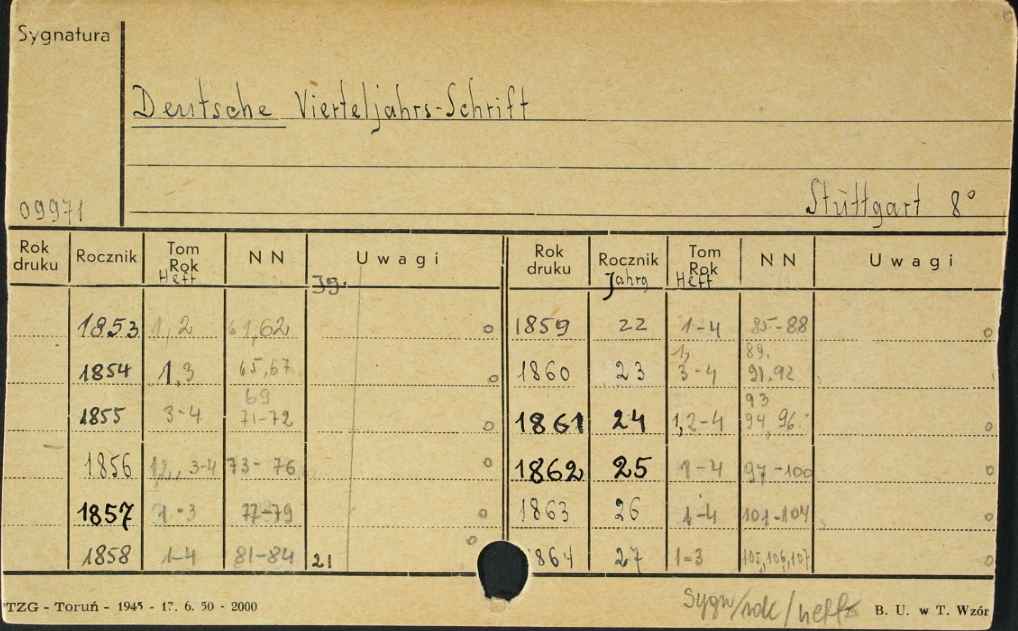 Sygnatura
Deutsche Vierteljahrs-Schrift
09971
Stuttgart 8°
Rok druku Rocznik Tom Rok Heft NN Uwagi Rok druku Rocznik Jahrg Tom Rok Heft NN Uwagi
Jg.
1853 1, 2 61,62 o 1859 22 1-4 85-88 o
1, 89.
1854 1,3 65,67 o 1860 23 3-4 91.92
69 93
1855 3-4 71-72 o 1861 24 1,2-4 94,96 o
1856 12, 3-4 73-76 o 1862 25 1-4 97-100 o
1857 1-3 77-79 o 1863 26 1-4 101-104 o
1858 1-4 81-84 21 o 1864 27 1-3 105,106,107 o
TZG - Toruń - 1945 - 17. 6. 50 - 2000
Sygn/rok/heft
B. U. w T. Wzór